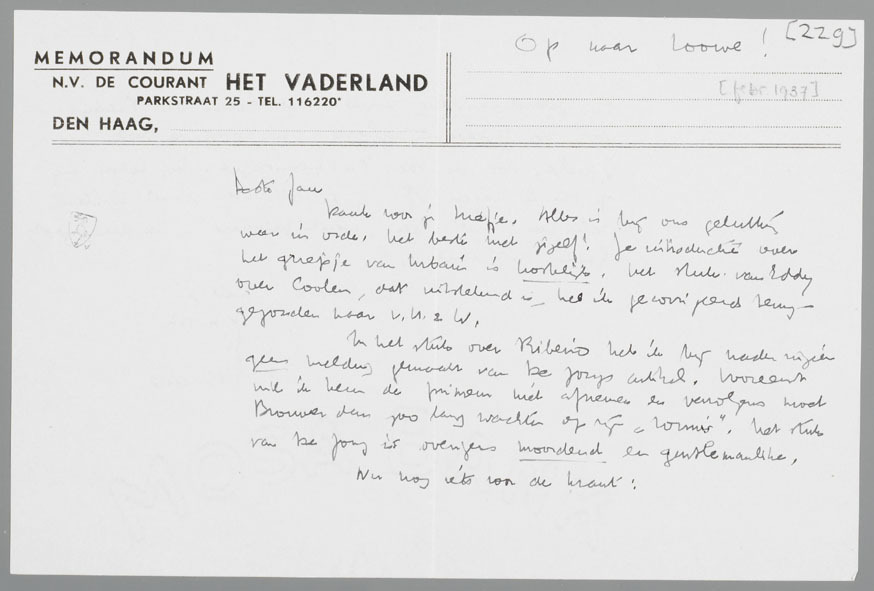 Op naar Loowe! [229]
MEMORANDUM
N.V. DE COURANT HET VADERLAND
PARKSTRAAT 25 - TEL. 116220*
DEN HAAG,
[febr. 1937]
Beste Jan
Dank voor je briefje. Alles is bij ons gelukkig
weer in orde. Het beste met jijzelf! Je introductie over
het groepje van Urbain is kostelijk. Het stuk van Eddy
over Coolen, dat uitstekend is, heb ik gecorrigeerd terug-
gezonden naar v. H. & W.
In het stuk over Ribeiro heb ik bij nader inzien
geen melding gemaakt van De Jongs artikel. Vooreerst
wil ik hem de primeur niet afnemen en vervolgens moet
Brouwer dan zoo lang wachten op zijn „ ". Het stuk
van De Jong is overigens moordend en gentlemanlike.
Nu nog iets voor de krant: